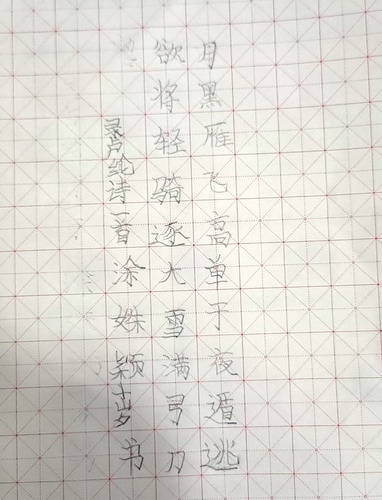 月黑雁飞高单于夜遁逃
欲将轻骑逐大雪满弓刀
录卢纶诗一首涂姝颖十岁书